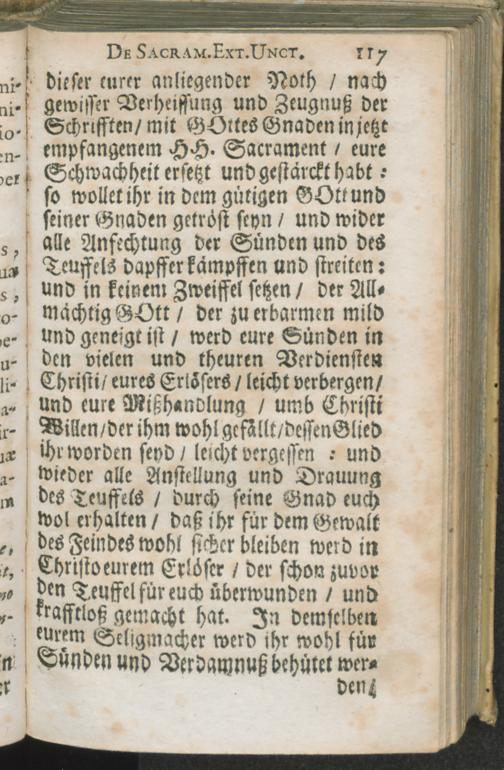 DE SACRAM.EXT.UNCT. 117
dieser eurer anliegender Noth / nach
gewisser Verheissung und Zeugnuß der
Schrifften / mit GOttes Gnaden in jetzt
empfangenem HH. Sacrament / eure
Schwachheit ersetzt und gestärckt habt :
so wollet ihr in dem gütigen GOtt und
seiner Gnaden getröst seyn / und wider
alle Anfechtung der Sünden und des
Teuffels dapffer kämpffen und streiten :
und in keinem Zweiffel setzen / der All-
mächtig GOtt / der zu erbarmen mild
und geneigt ist / werd eure Sünden in
den vielen und theuren Verdiensten
Christi / eures Erlösers / leicht verbergen /
und eure Mißhandlung / umb Christi
Willen / der ihm wohl gefällt / dessen Glied
ihr worden seyd / leicht vergessen : und
wieder alle Anstellung und Drauung
des Teuffels / durch seine Gnad euch
wol erhalten / daß ihr für dem Gewalt
des Feindes wohl sicher bleiben werd in
Christo eurem Erlöser / der schon zuvor
den Teuffel für euch überwunden / und
krafftloß gemacht hat. In demselben
eurem Seligmacher werd ihr wohl für
Sünden und Verdamnuß behütet wer-
den /